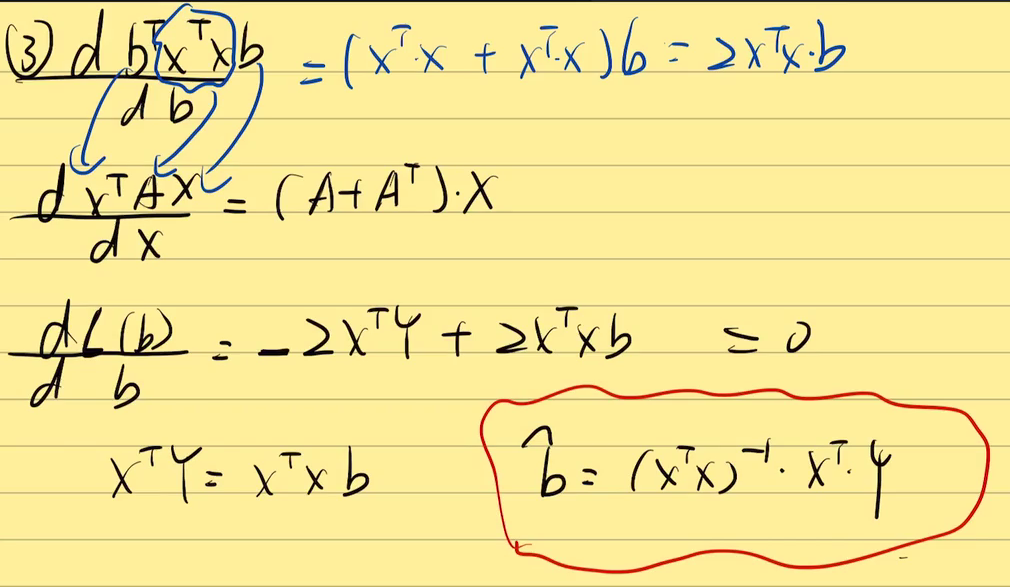 (3) d bᵀxᵀxb / d b = (xᵀ·x + xᵀ·x)b = 2xᵀx·b
d xᵀAx / d x = (A+Aᵀ)·x
dL(b) / d b = -2xᵀY + 2xᵀxb = 0
xᵀY = xᵀxb b̂ = (xᵀx)⁻¹·xᵀ·Y